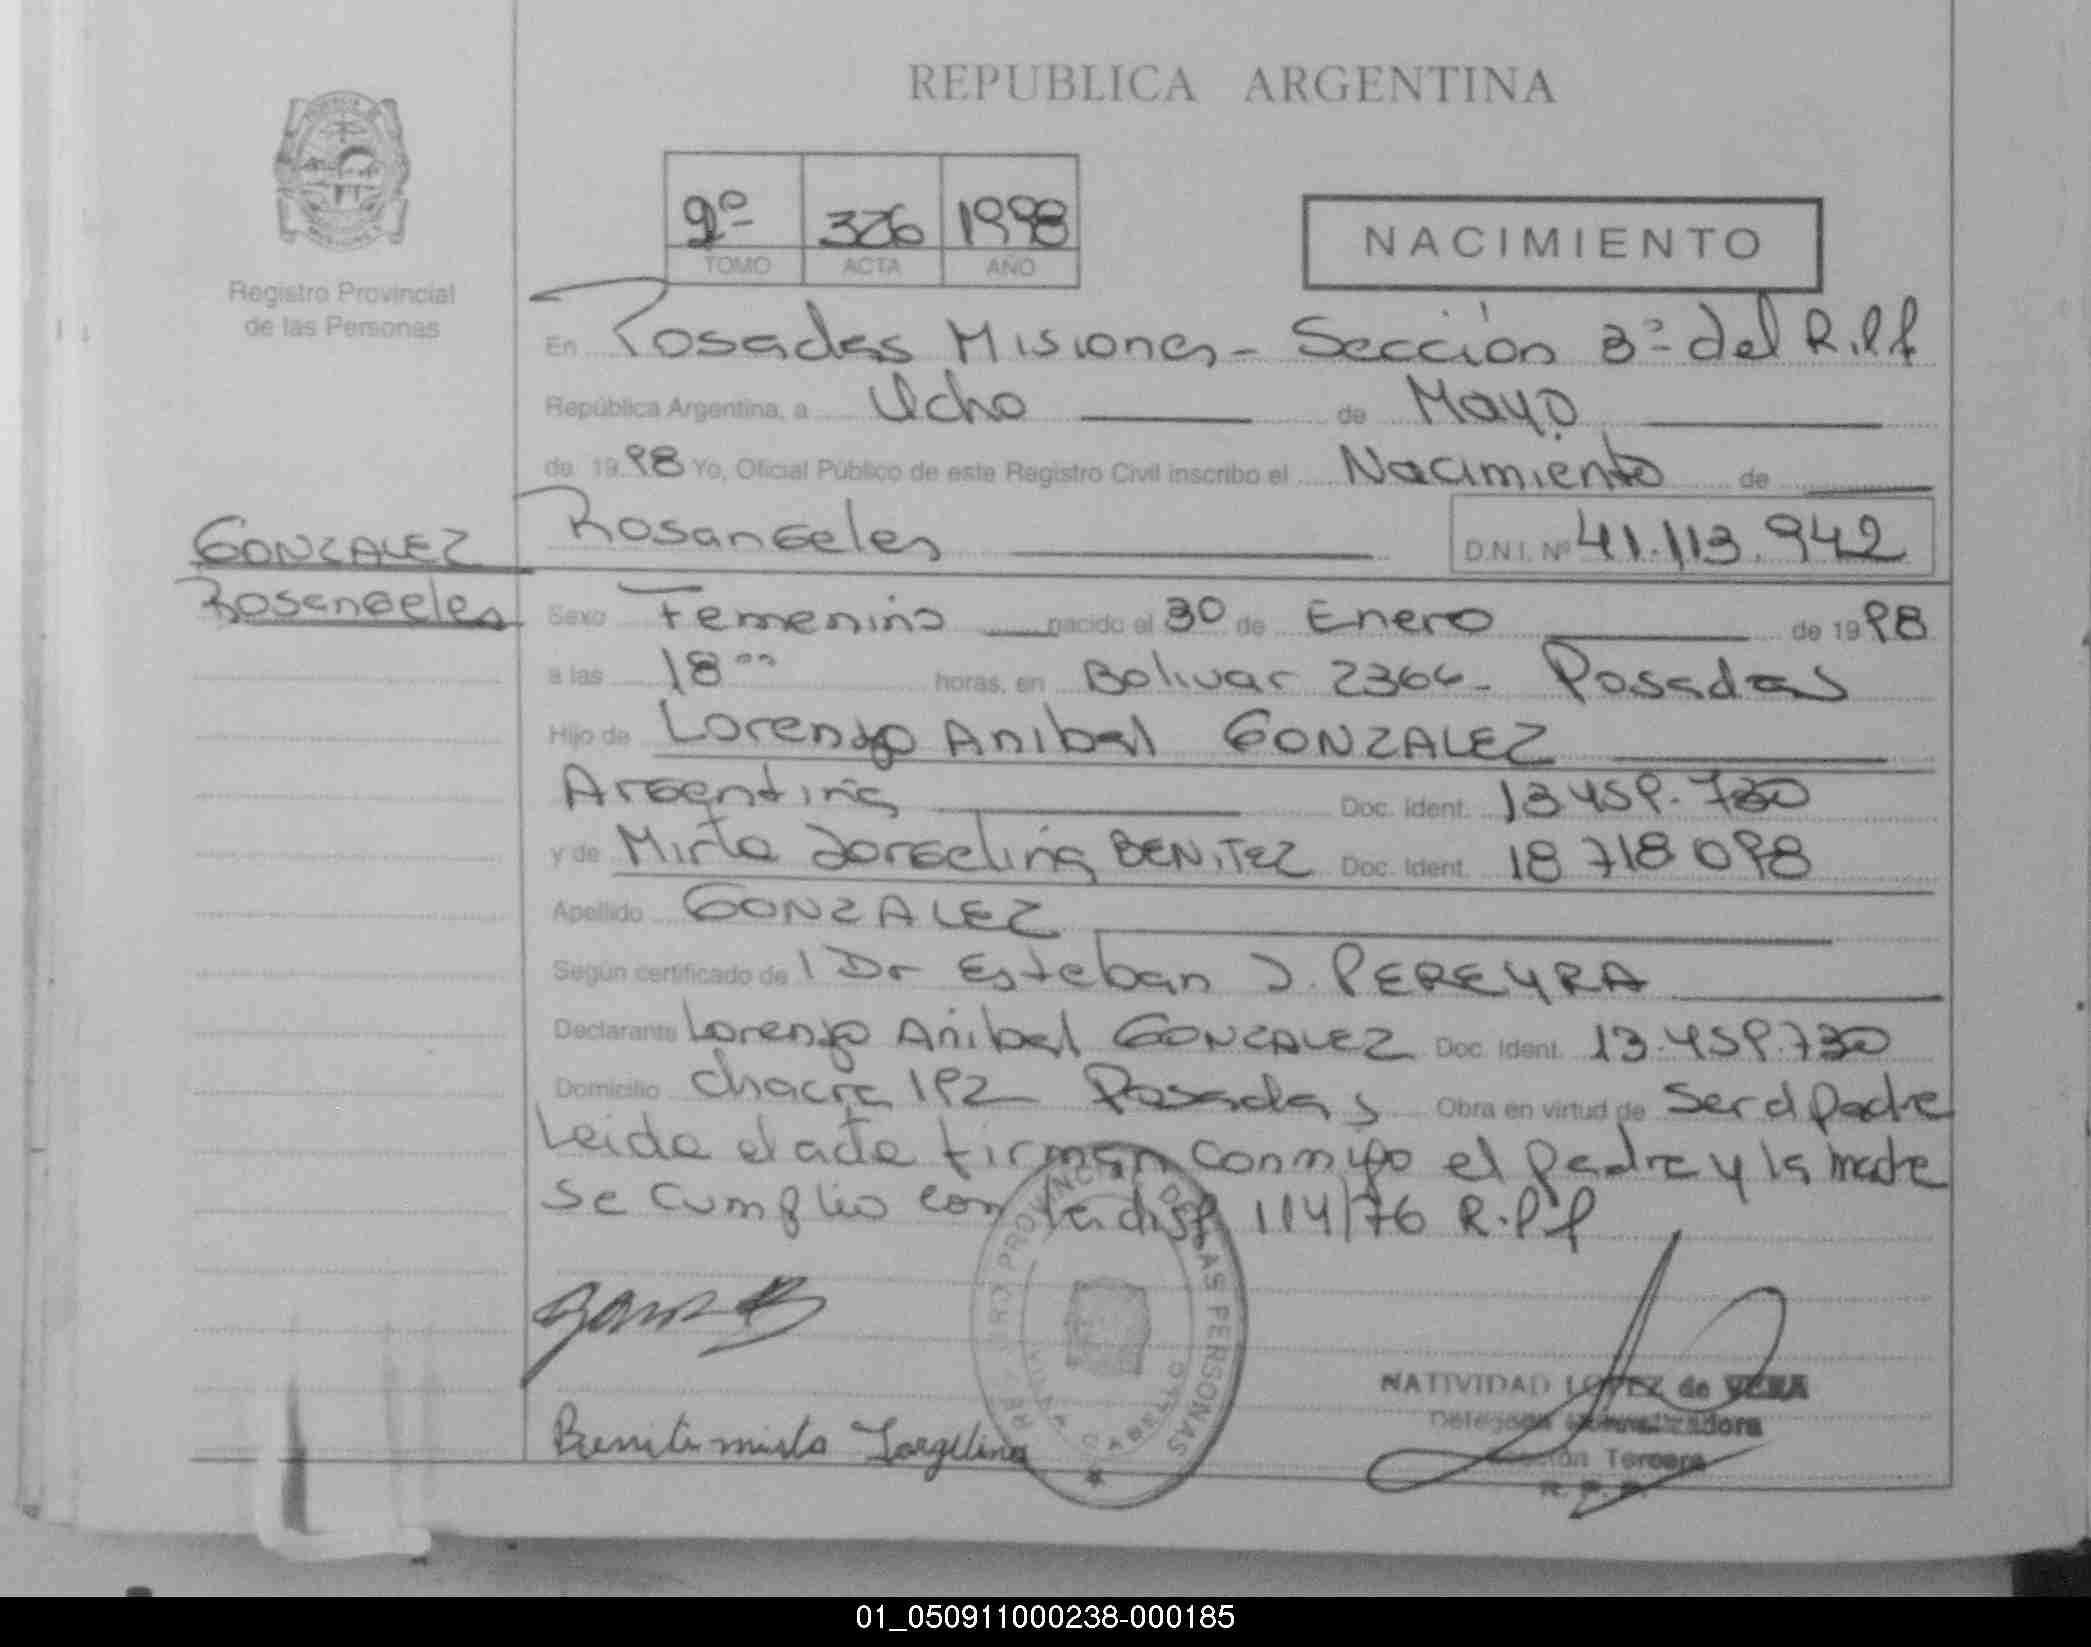 REPUBLICA ARGENTINA
2º 326 1998
TOMO ACTA AÑO
NACIMIENTO
Registro Provincial
de las Personas
En Posadas Misiones - Sección 3ª del R.P.P
República Argentina, a Ocho de Mayo
de 1998 Yo, Oficial Público de este Registro Civil inscribo el Nacimiento de
GONZALEZ
Rosangeles
Rosangeles D.N.I. Nº 41.113.942
Sexo Femenino nacido el 30 de Enero de 1998
a las 18 ºº horas, en Bolivar 2366 - Posadas
Hijo de Lorenzo Anibal GONZALEZ
Argentina Doc. Ident. 13.459.730
y de Mirta Jorgelina BENITEZ Doc. Ident. 18 718 098
Apellido GONZALEZ
Según certificado de l Dr Esteban J. PEREYRA
Declarante Lorenzo Anibal GONZALEZ Doc. Ident. 13.459.730
Domicilio Chacra 192 Posadas Obra en virtud de Ser el padre
Leida el acta firman conmigo el padre y la madre
Se cumplio con la disp 114/76 R.P.P
REGISTRO PROVINCIAL DE LAS PERSONAS
VILLA CABELLO
NATIVIDAD LOPEZ de VERA
Delegada Normalizadora
Sección Tercera
R. P. P.
Benitez mirta Jorgelina
01_050911000238-000185